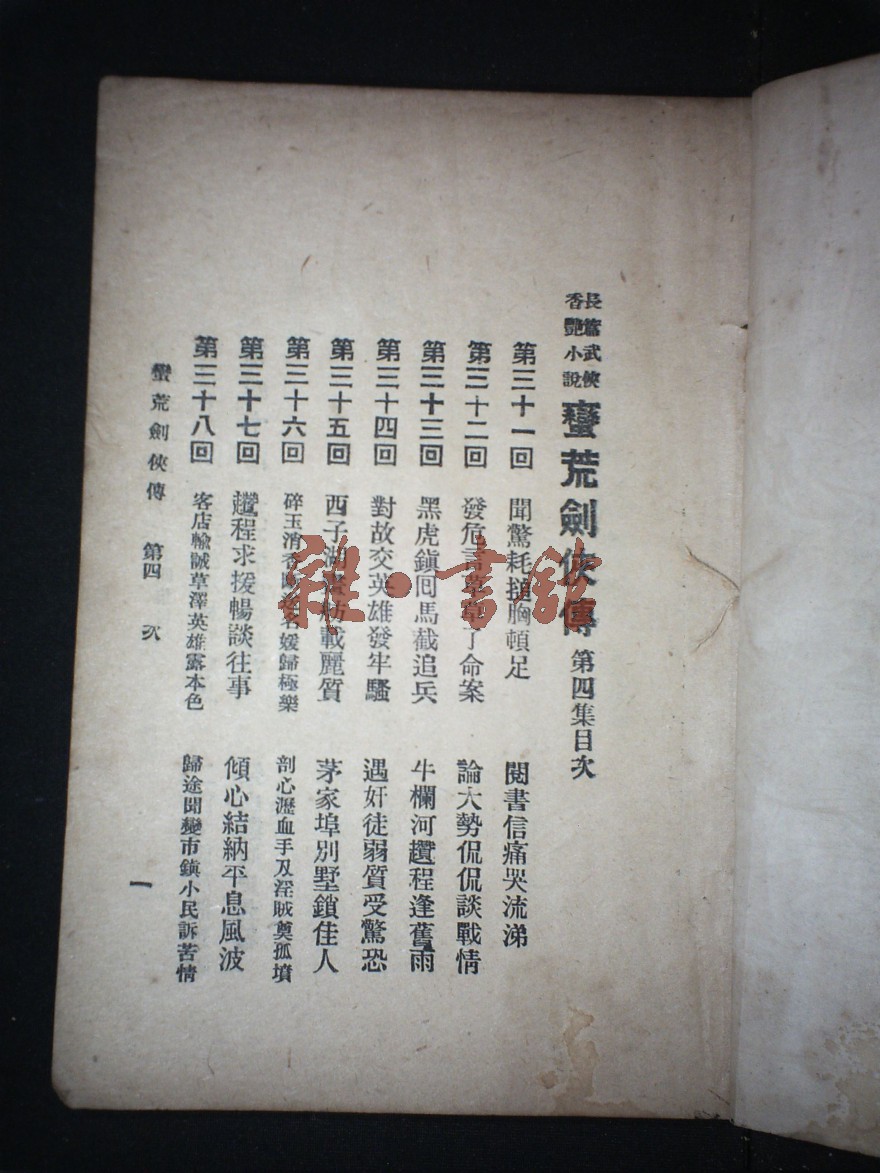 長篇武俠
香艷小說
蠻荒劍俠傳 第四集目次
第三十一回 聞驚耗搥胸頓足 閱書信痛哭流涕
第三十二回 發危言草草了命案 論大勢侃侃談戰情
第三十三回 黑虎鎮回馬截追兵 牛欄河趲程逢舊雨
第三十四回 對故交英雄發牢騷 遇奸徒弱質受驚恐
第三十五回 西子湖 載麗質 茅家埠別墅鎖佳人
第三十六回 碎玉消香 名媛歸極樂 剖心瀝血手刃淫賊奠孤墳
第三十七回 趲程求援暢談往事 傾心結納平息風波
第三十八回 客店輸誠草澤英雄露本色 歸途聞變市鎮小民訴苦情
蠻荒劍俠傳 第四 次 一
雜·書館